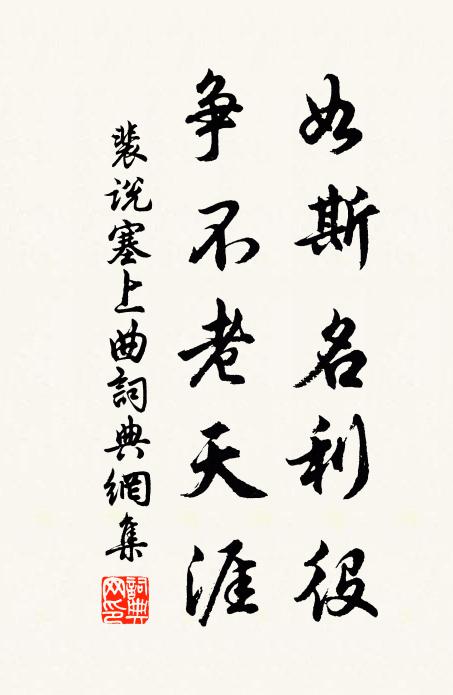 如斯名利役
争不老天涯
裴说塞上曲詞典網集
詞典网印